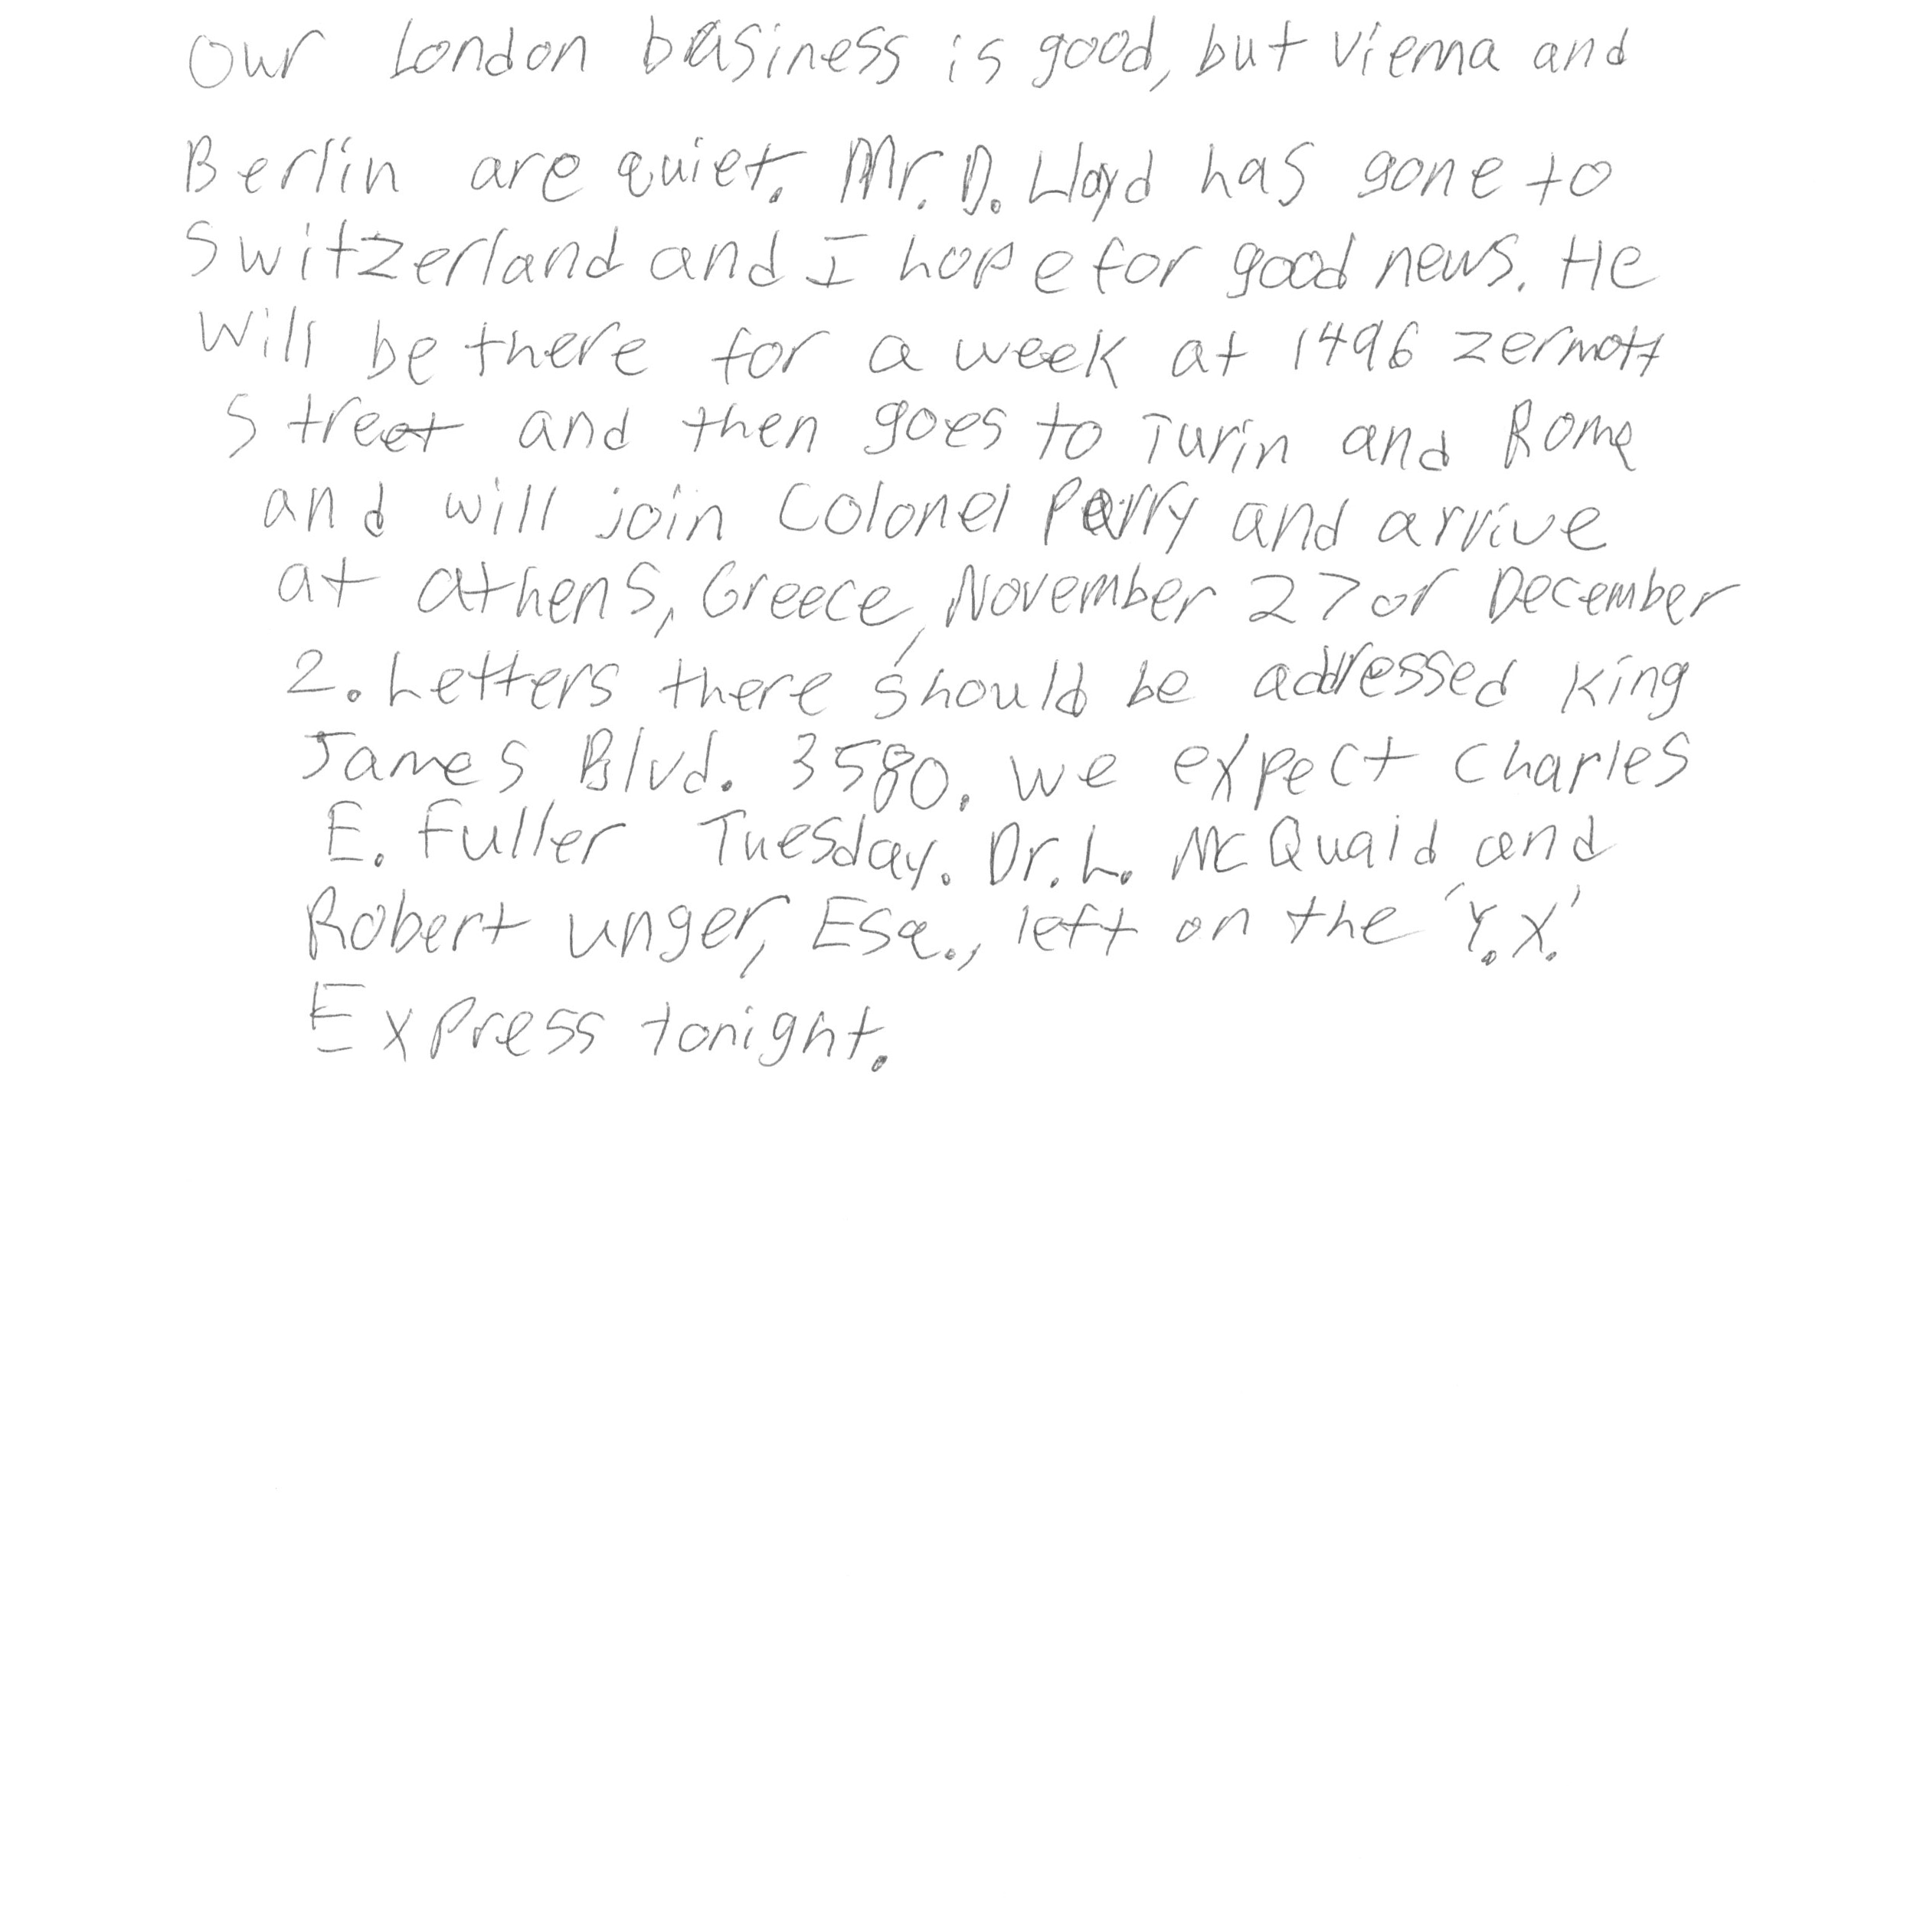 Our London business is good, but Vienna and
Berlin are quiet. Mr. D. Lloyd has gone to
Switzerland and I hope for good news. He
will be there for a week at 1496 Zermott
Street and then goes to Turin and Rome
and will join Colonel Parry and arrive
at Athens, Greece, November 27 or December
2. Letters there should be addressed King
James Blvd. 3580. We expect Charles
E. Fuller Tuesday. Dr. L. McQuaid and
Robert Unger, Esq., left on the 'Y.X.'
Express tonight.